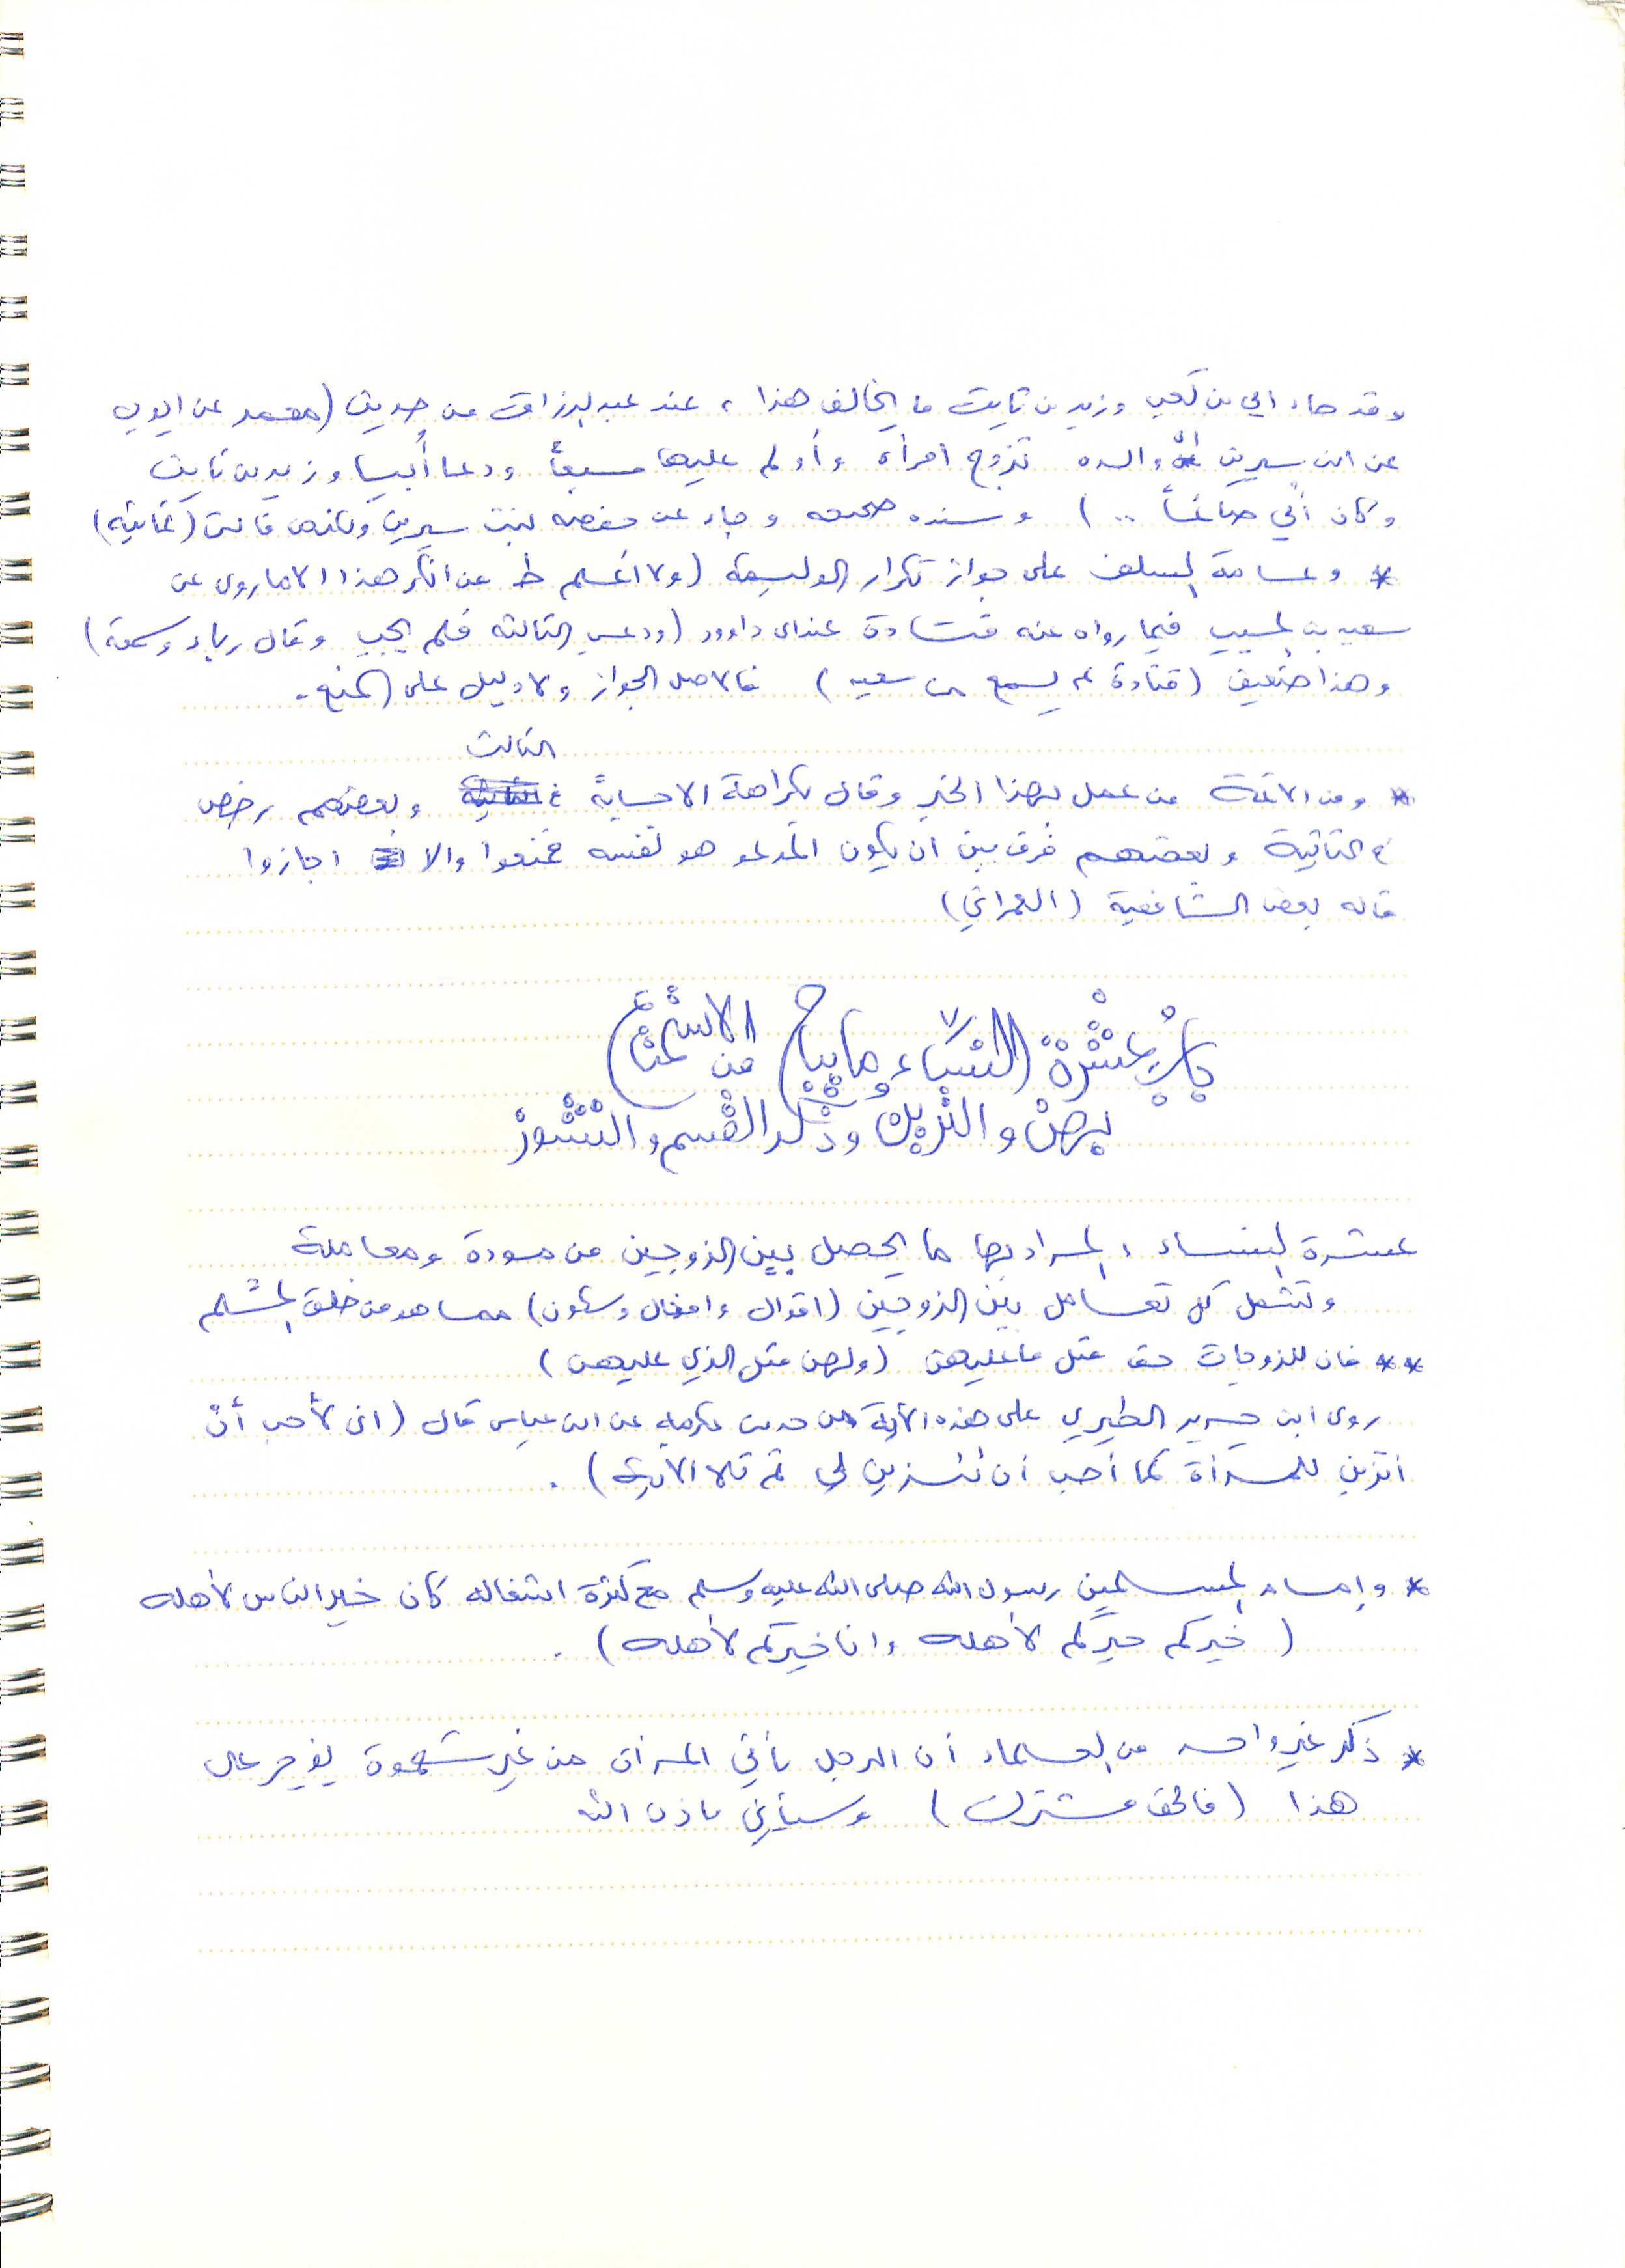 وقد جاء ابي بن كعب وزيد بن ثابت ما يخالف هذا ، عند عبد الرزاق من حديث (معمر عن ايوب
عن ابن سيرين أن والده تزوج امرأة وأولم عليها سبعاً ودعا أبيا وزيد بن ثابت
وكان أبي صائماً ..) وسنده صحيح وجاء عن حفصه بنت سيرين ولكنها قالت (ثمانية)
* وعامة السلف على جواز تكرار الوليمة (ولا أعلم من انكر هذا الا ما روى عن
سعيد بن المسيب فيما رواه عنه قتادة عند ابي داوود (ودعي الثالثه فلم يجب وقال رياء وسمعة)
وهذا ضعيف (قتادة لم يسمع من سعيد) فالاصل الجواز ولا دليل على المنع .
الثالث
* ومن الائمة من عمل بهذا الخبر وقال بكراهة الاجابة في وبعضهم رخص
في الثانية وبعضهم فرق بين ان يكون المدعو هو نفسه فمنعوا والا اجازوا
قاله بعض الشافعية (العمراني)
باب عشرة النساء وما يباح من الاستمتاع
بهن والتزين وذكر القسم والنشوز
عشرة النساء ، المراد بها ما يحصل بين الزوجين من مودة ومعاملة
وتشمل كل تعامل بين الزوجين (اقوال وافعال وشئون) مما هو من خلق المسلم
** فان للزوجات حق مثل ما عليهن (ولهن مثل الذي عليهن)
روى ابن جرير الطبري على هذه الآية من حديث عكرمه عن ابن عباس قال (اني لأحب أن
اتزين للمرأة كما أحب أن تتزين لي ثم تلا الآية) .
* وإمام المسلمين رسول الله صلى الله عليه وسلم مع كثرة انشغاله كان خير الناس لأهله
(خيركم خيركم لأهله وانا خيركم لأهله) .
* ذكر غير واحد من العلماء أن الرجل يأتي المرأة من غير شهوة يؤجر على
هذا (فالحق مشترك) وسيأتي باذن الله